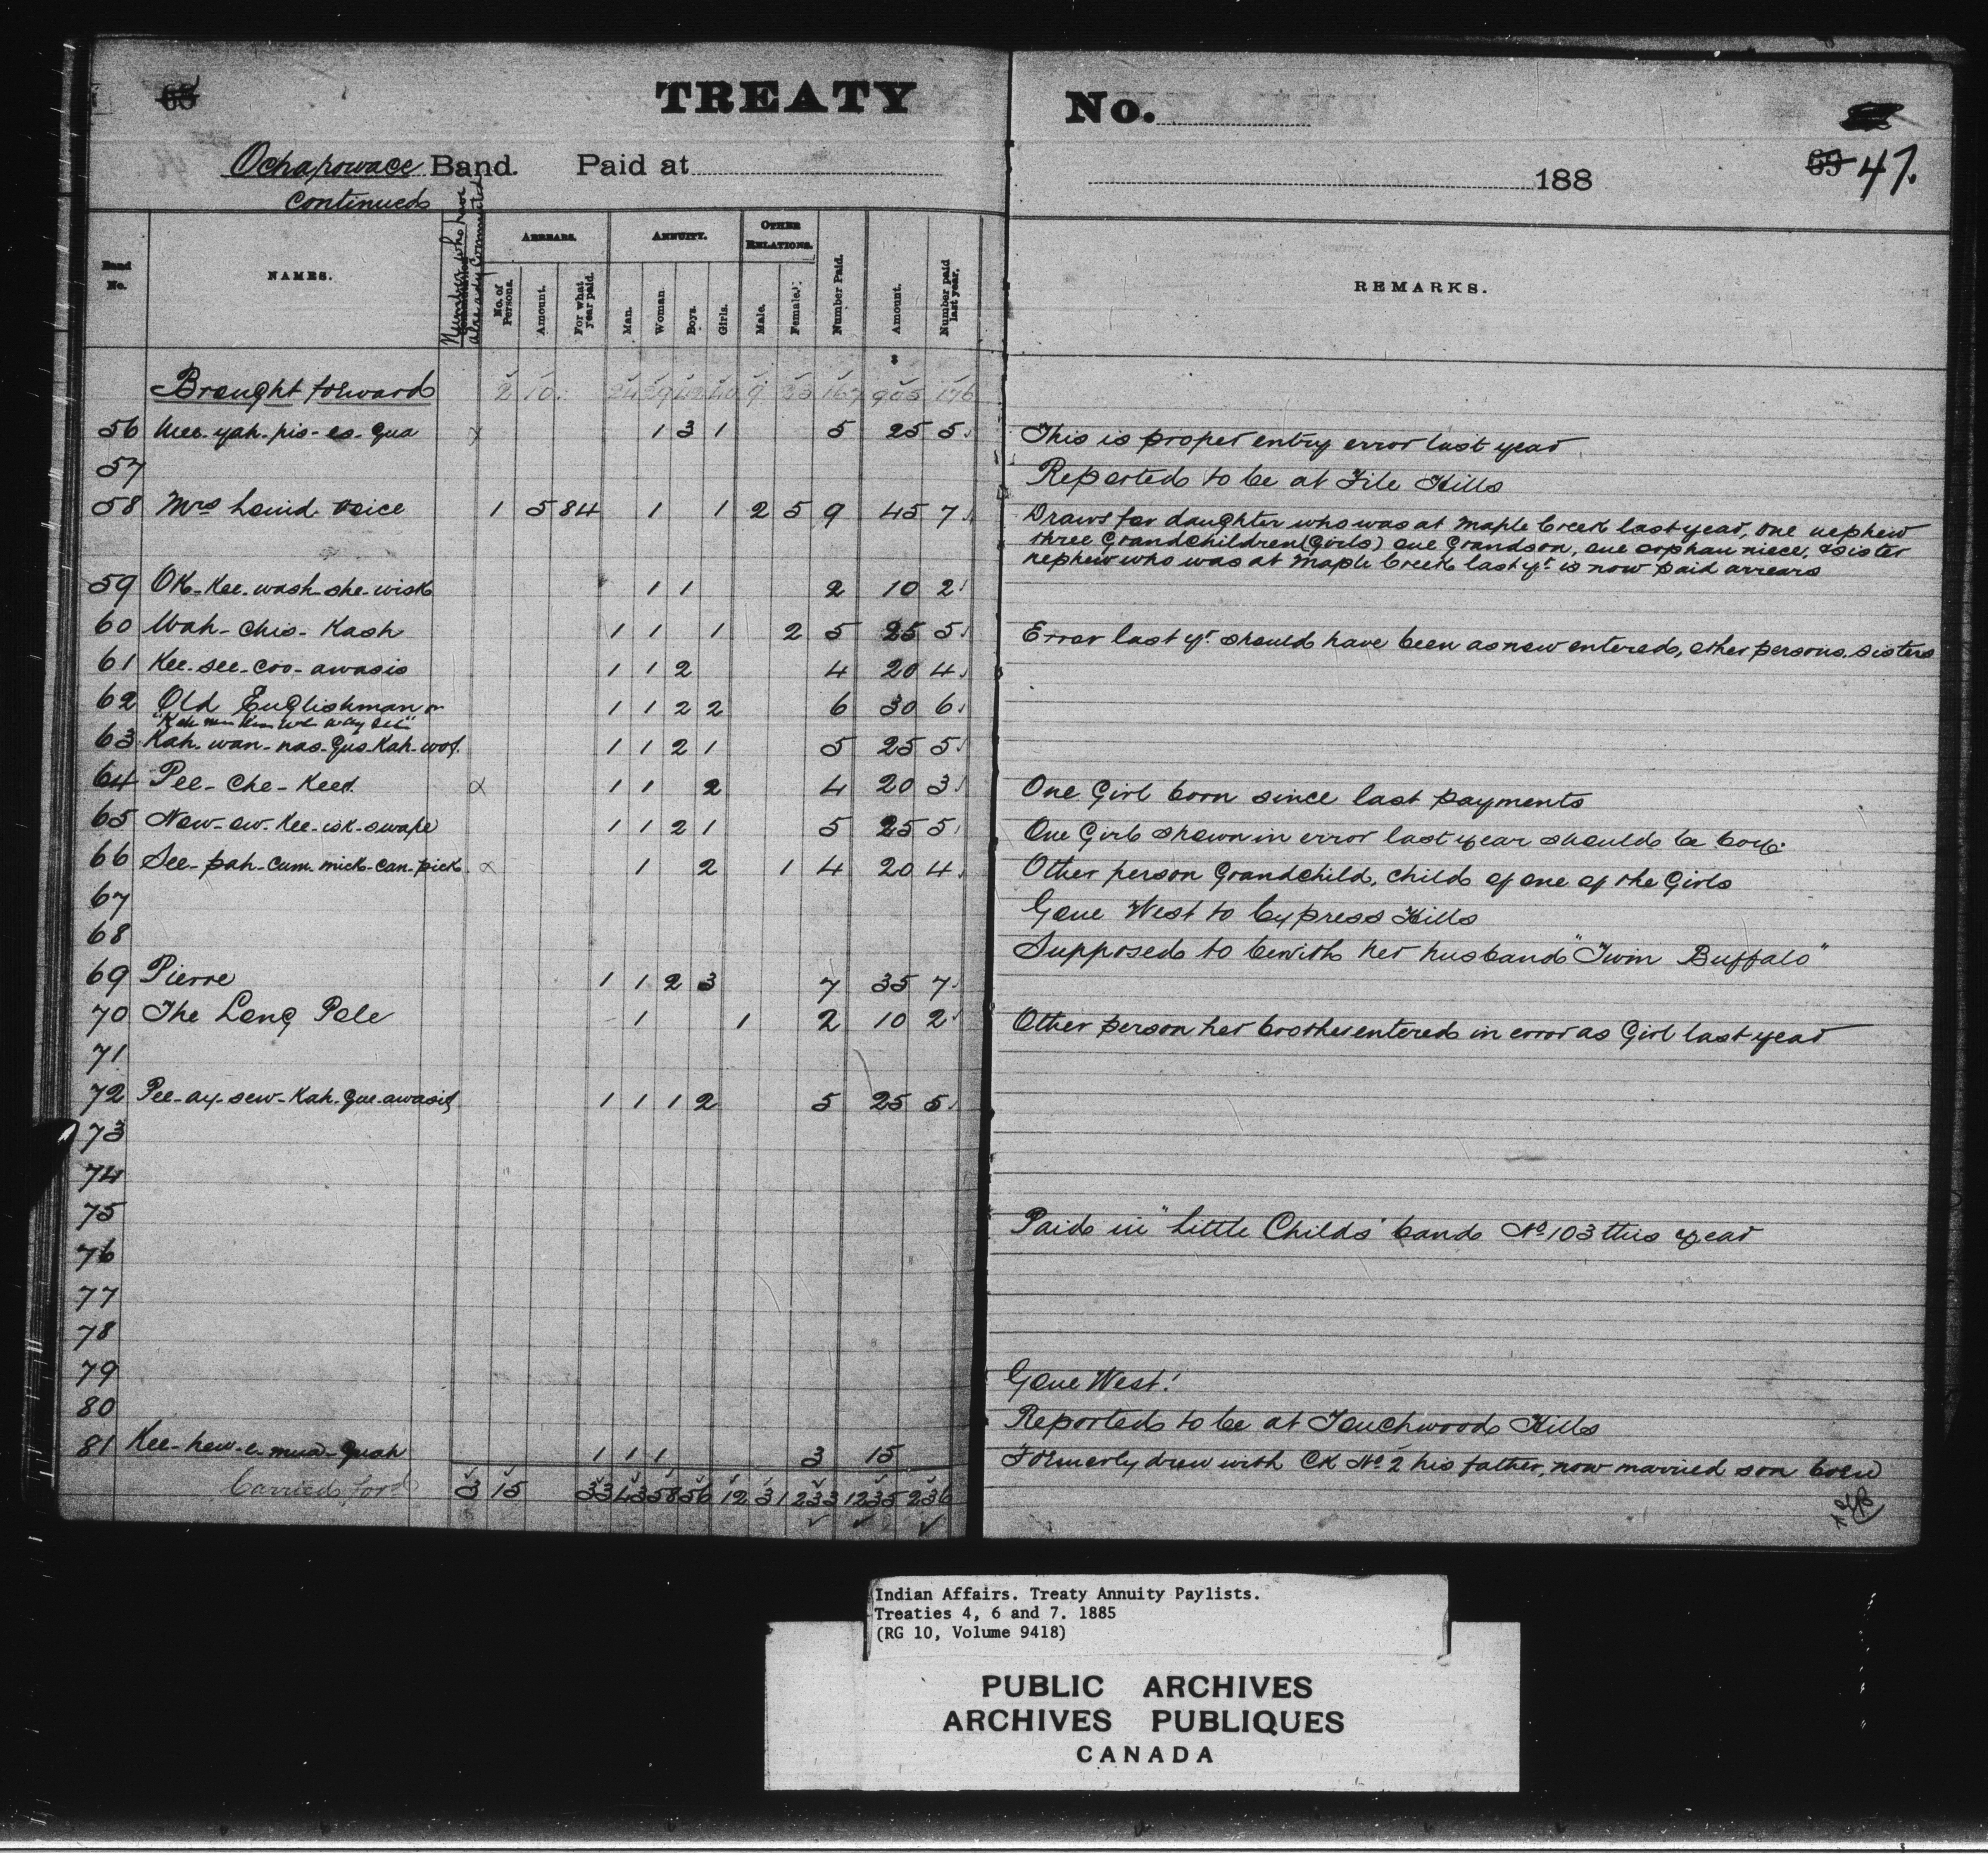 65
TREATY No.
Ochapowace Band. Paid at 188
69 47.
Continued
Band No.
NAMES.
Number who have already Commuted
ARREARS.
No. of Persons.
Amount.
For what year paid.
ANNUITY.
Man.
Woman.
Boys.
Girls.
OTHER RELATIONS.
Male.
Female.
Number Paid.
Amount.
Number paid last year.
REMARKS.
$
Brought forward 2 10 9 33 167 905 176
56 Mee-yah-pis-es-qua x 1 3 1 5 25 5 This is proper entry error last year
57 Reported to be at File Hills
58 Mrs Loud Voice 1 5 84 1 1 2 5 9 45 7 Draws for daughter who was at Maple Creek last year, one nephew
three Grandchildren (Girls) one Grandson, one orphan niece, & sister
nephew who was at Maple Creek last yr. is now paid arrears
59 OK-Kee-wash-she-wisk 1 1 2 10 2
60 Wah-Chis-Kash 1 1 1 2 5 25 5 Error last yr. should have been as now entered, other persons. sisters
61 Kee-see-coo-awasis 1 1 2 4 20 4
62 Old Englishman or 1 1 2 2 6 30 6
63 Kah-wan-nas-Gus-Kah-wot 1 1 2 1 5 25 5
64 Pee-Che-Keet x 1 1 2 4 20 3 One Girl born since last payments
65 Now-ow-Kee-isk-swape 1 1 2 1 5 25 5 One Girl shown in error last year should be boy.
66 See-pah-Cum-mick-can-pick x 1 2 1 4 20 4 Other person Grandchild, child of one of the Girls
67 Gone West to Cypress Hills
68 Supposed to be with her husband "Twin Buffalo"
69 Pierre 1 1 2 3 7 35 7
70 The Long Pole 1 1 2 10 2 Other person her brother entered in error as Girl last year
71
72 Pee-ay-sew-Kah-Gue-awasis 1 1 1 2 5 25 5
73
74
75 Paid in "Little Childs" band No 103 this year
76
77
78
79 Gone West!
80 Reported to be at Touchwood Hills
81 Kee-hew-e-mua-quah 1 1 1 3 15 Formerly drew with CK No 2 his father, now married son born
Carried ford 3 15 33 43 58 56 12 31 233 1235 236
Indian Affairs. Treaty Annuity Paylists.
Treaties 4, 6 and 7. 1885
(RG 10, Volume 9418)
PUBLIC ARCHIVES
ARCHIVES PUBLIQUES
CANADA